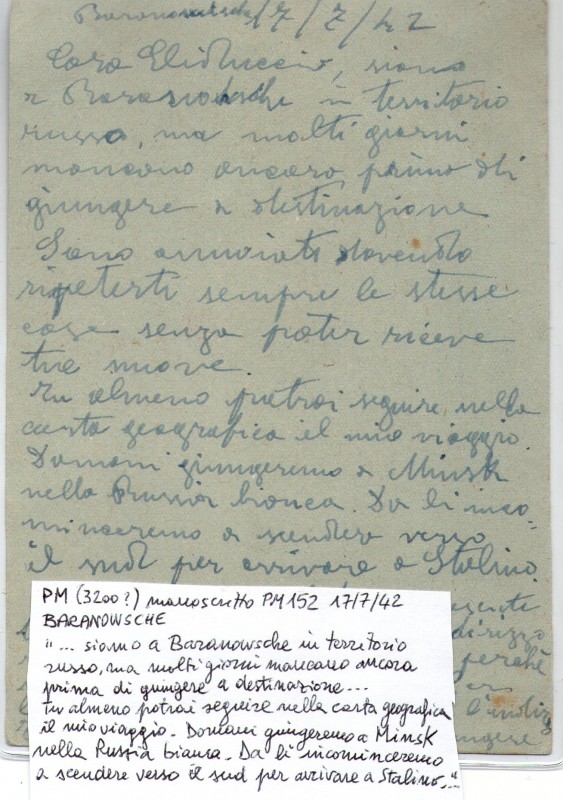 Baranowsche 17/7/42
Caro Eliduccio, siamo
a Baranowsche in territorio
russo, ma molti giorni
mancano ancora prima di
giungere a destinazione
Sono annoiato dovendo
ripeterti sempre le stesse
cose senza poter riceve
tue nuove.
Tu almeno potrai seguire nella
carta geografica il mio viaggio.
Domani giungeremo a Minsk
nella Russia bianca. Da lì inco=
minceremo a scendere verso
il sud per arrivare a Stalino.
dirizzo
perchè
l'indiriz
giungere
PM (3200?) manoscritto PM 152 17/7/42
BARANOWSCHE
"... siamo a Baranowsche in territorio
russo, ma molti giorni mancano ancora
prima di giungere a destinazione...
Tu almeno potrai seguire nella carta geografica
il mio viaggio. Domani giungeremo a Minsk
nella Russia bianca. Da lì incominceremo
a scendere verso il sud per arrivare a Stalino,..."